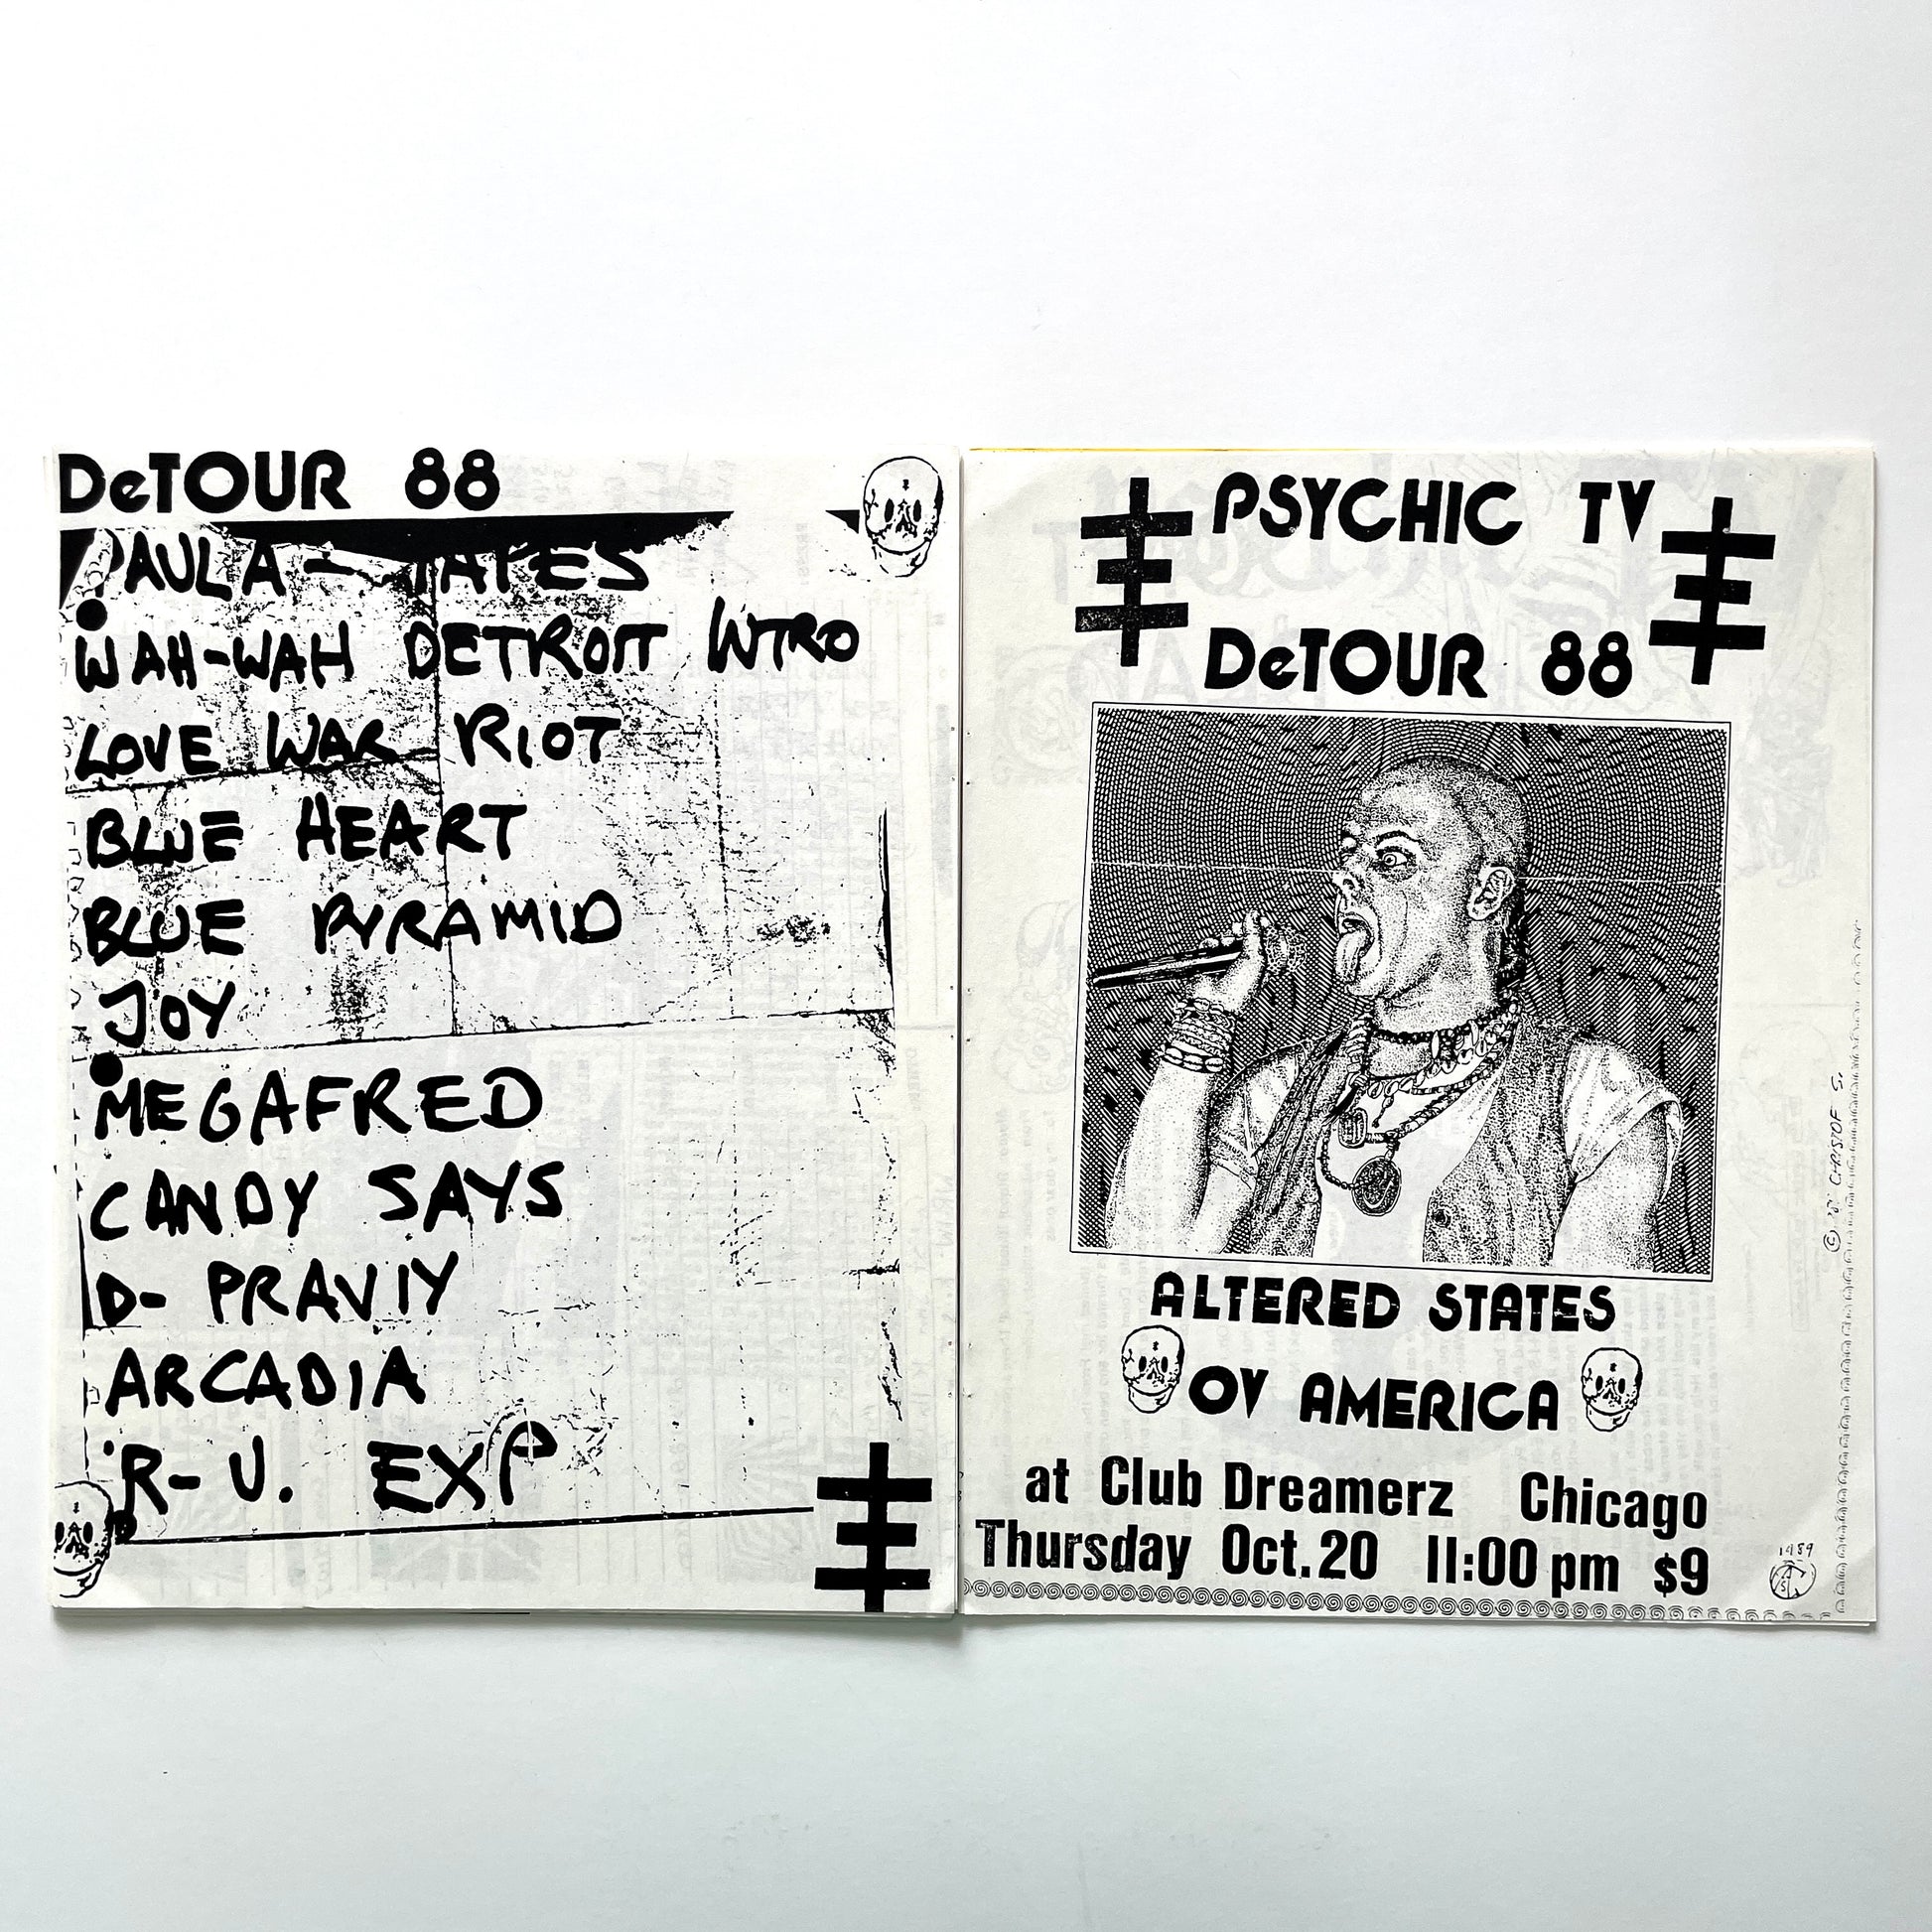 DeTOUR 88
PAULA - TAPES
WAH-WAH DETROIT INTRO
LOVE WAR RIOT
BLUE HEART
BLUE PYRAMID
JOY
MEGAFRED
CANDY SAYS
D- PRAVIY
ARCADIA
R- U. EXP
PSYCHIC TV
DeTOUR 88
ALTERED STATES
OV AMERICA
at Club Dreamerz Chicago
Thursday Oct. 20 11:00 pm $9
CHRISTOF S.
1989